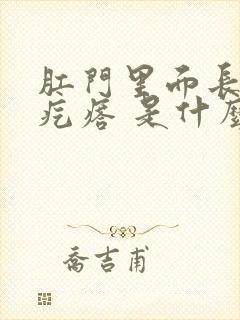 肛門里而長
疙瘩 是什麼
喬吉甫